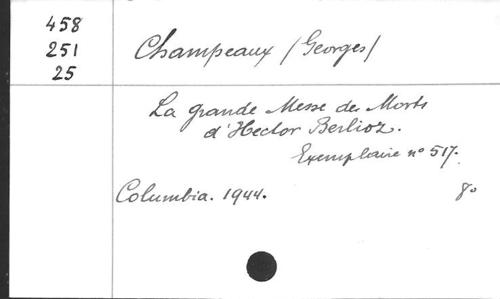 458
251
25
Champeaux (Georges)
La grande Messe des Morts
d'Hector Berlioz.
Exemplaire n° 517.
Columbia. 1944. 8°